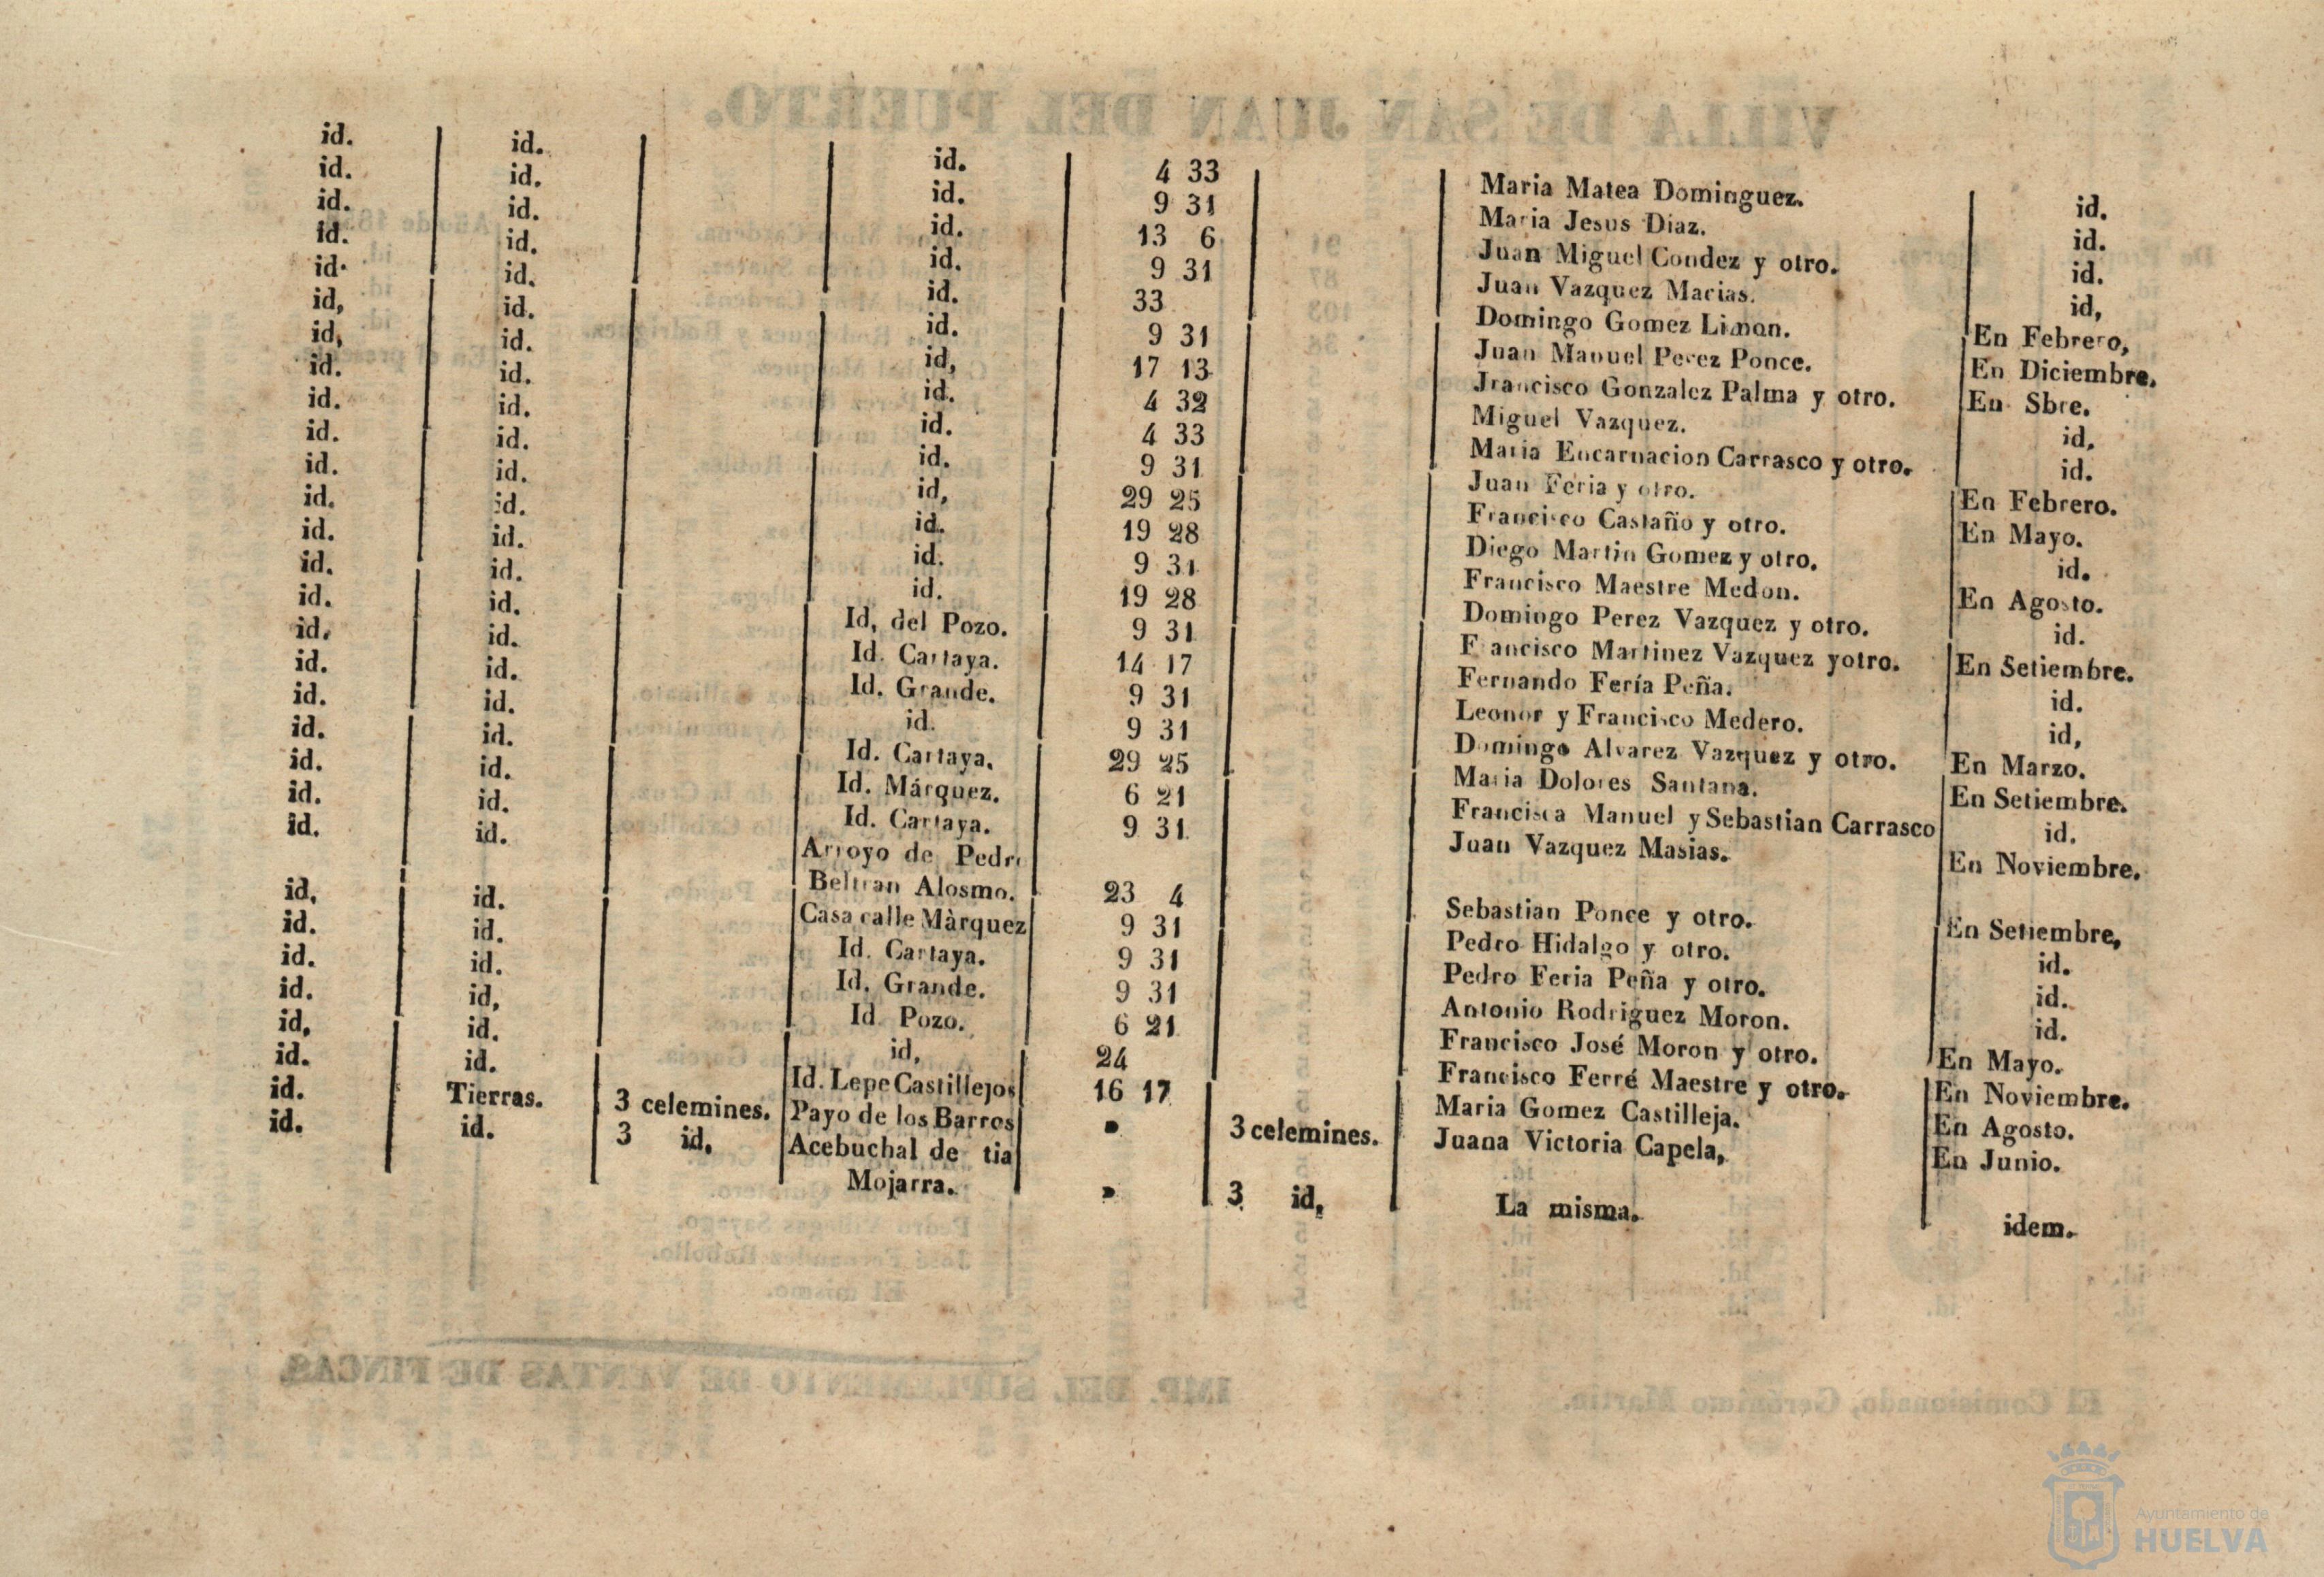 id. id. id. 4 33 Maria Matea Dominguez. id.
id. id. id. 9 31 Maria Jesus Diaz. id.
id. id. id. 13 6 Juan Miguel Condez y otro. id.
id. id. id. 9 31 Juan Vazquez Macias. id,
id. id. id. 33 Domingo Gomez Liman. En Febrero,
id, id. id. 9 31 Juan Manuel Perez Ponce. En Diciembre.
id, id. id, 17 13 Francisco Gonzalez Palma y otro. En Sbre.
id. id. id. 4 32 Miguel Vazquez. id,
id. id. id. 4 33 Maria Encarnacion Carrasco y otro. id.
id. id. id. 9 31 Juan Feria y otro. En Febrero.
id. id. id, 29 25 Francisco Castaño y otro. En Mayo.
id. id. id. 19 28 Diego Martin Gomez y otro. id.
id. id. id. 9 31 Francisco Maestre Medon. En Agosto.
id. id. id. 19 28 Domingo Perez Vazquez y otro. id.
id. id. Id, del Pozo. 9 31 Francisco Martinez Vazquez yotro. En Setiembre.
id, id. Id. Cartaya. 14 17 Fernando Fería Peña. id.
id. id. Id. Grande. 9 31 Leonor y Francisco Medero. id,
id. id. id. 9 31 Domingo Alvarez Vazquez y otro. En Marzo.
id. id. Id. Cartaya. 29 25 Maria Dolores Santana. En Setiembre.
id. id. Id. Márquez. 6 21 Francisca Manuel y Sebastian Carrasco id.
id. id. Id. Cartaya. 9 31 Juan Vazquez Masias. En Noviembre.
id. id. Arroyo de Pedro
Beltran Alosmo. 23 4 Sebastian Ponce y otro. En Setiembre,
id, id. Casa calle Màrquez 9 31 Pedro Hidalgo y otro. id.
id. id. Id. Cartaya. 9 31 Pedro Feria Peña y otro. id.
id. id. Id. Grande. 9 31 Antonio Rodriguez Moron. id.
id. id, Id. Pozo. 6 21 Francisco José Moron y otro. En Mayo.
id, id. id, 24 Francisco Ferré Maestre y otro. En Noviembre.
id. id. Id. Lepe Castillejos 16 17 Maria Gomez Castilleja. En Agosto.
id. Tierras. 3 celemines. Payo de los Barros ▪ 3 celemines. Juana Victoria Capela, En Junio.
id. id. 3 id, Acebuchal de tia
Mojarra. ▪ 3 id, La misma. idem.
Ayuntamiento de
HUELVA